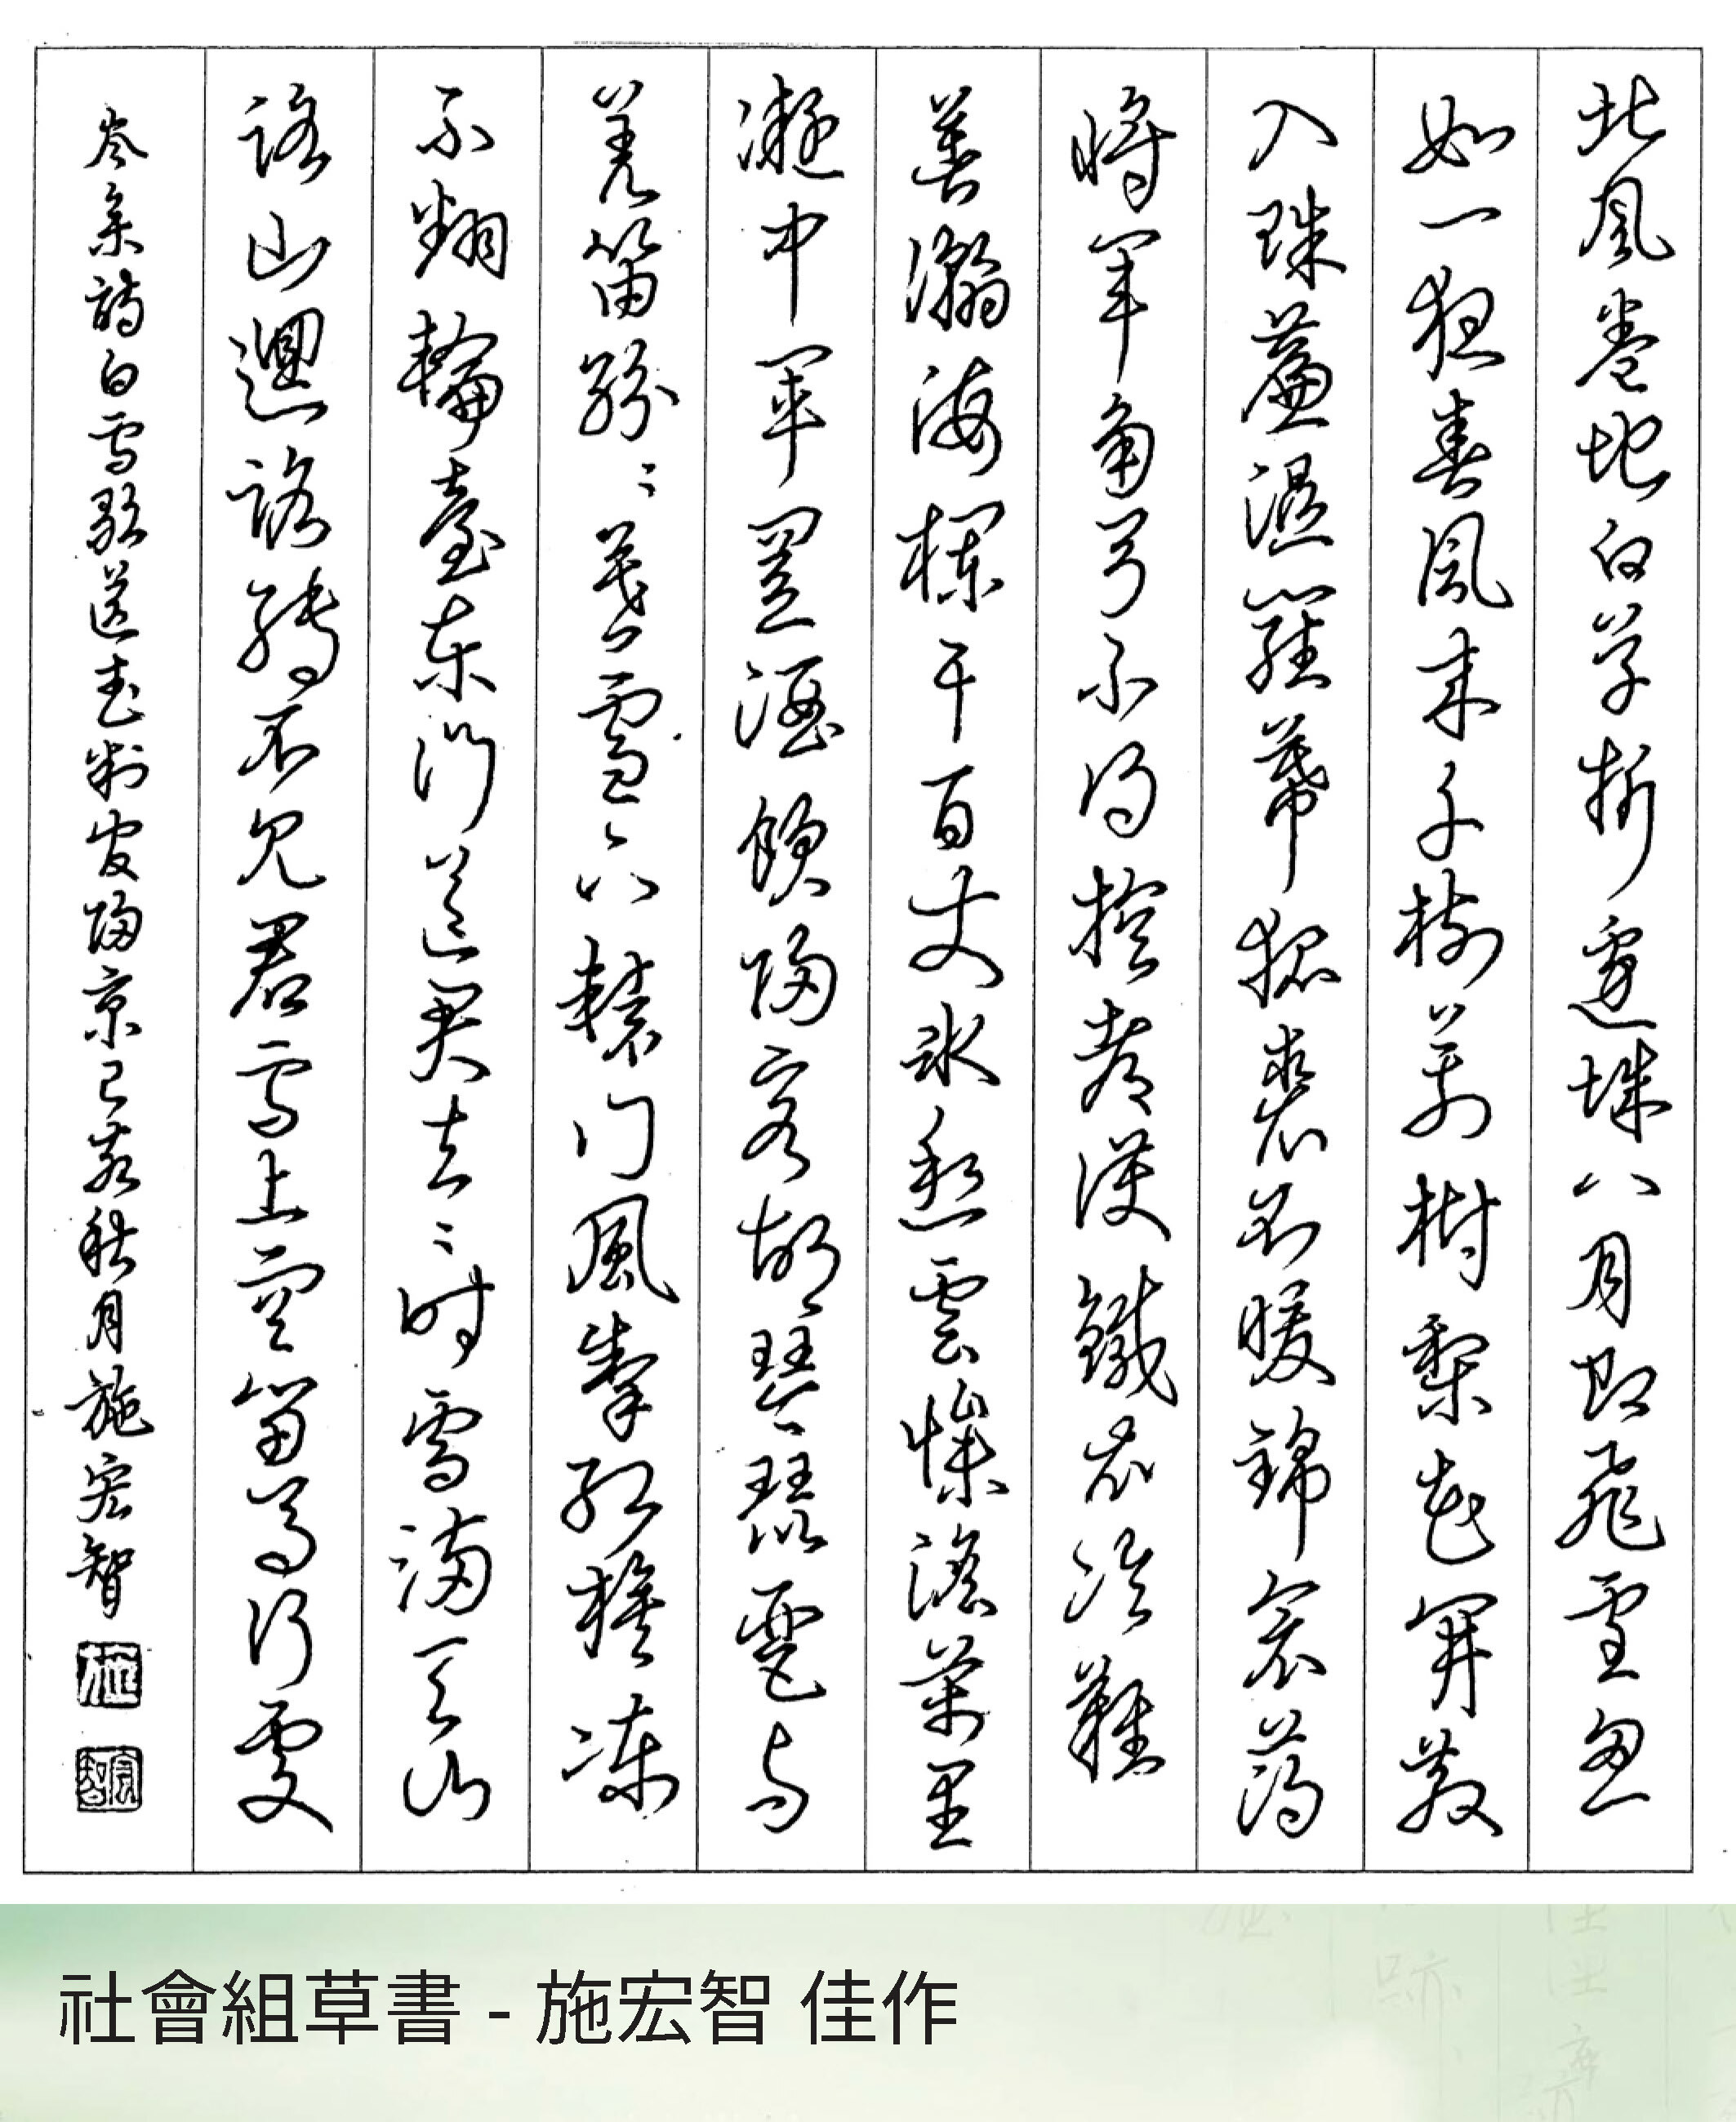 北風卷地白草折邊城八月即飛雪忽
如一夜春風來千樹萬樹梨花開散
入珠簾濕羅幕狐裘不暖錦衾薄
將軍角弓不得控都護鐵衣冷難
著瀚海欄干百丈冰愁雲慘澹萬里
凝中軍置酒飲歸客胡琴琵琶與
羌笛紛々暮雪下轅門風掣紅旗凍
不翻輪臺東門送君去々時雪滿天山
路山迴路轉不見君雪上空留馬行處
岑參詩白雪歌送武判官歸京己亥秋月施宏智
施
宏智
社會組草書 - 施宏智 佳作